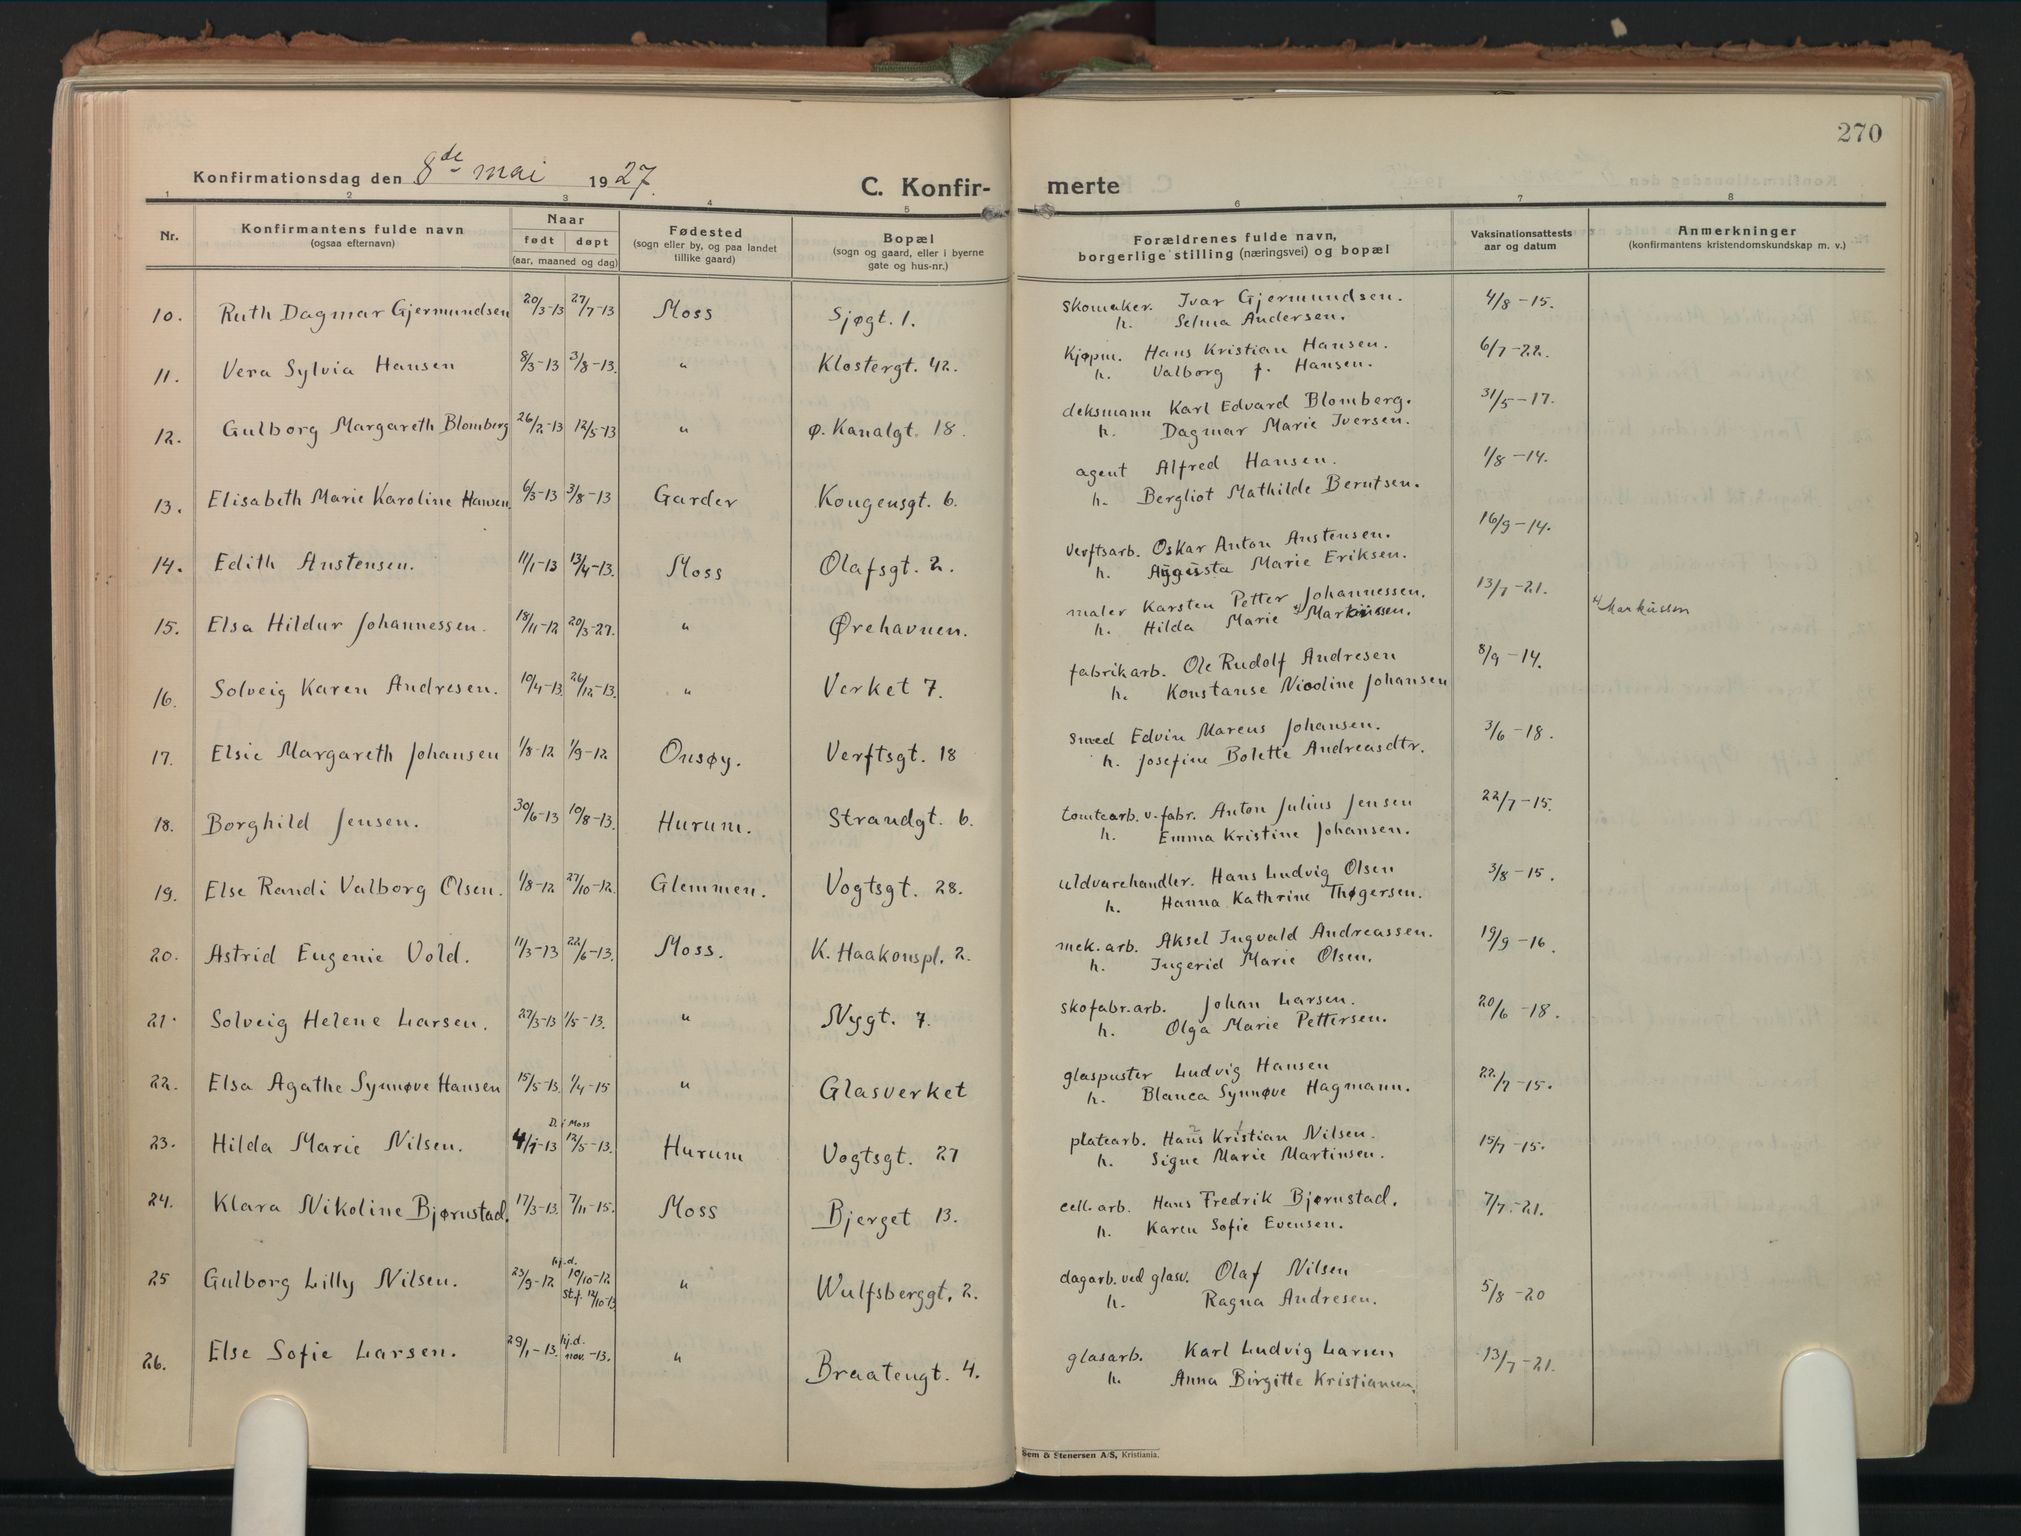 270
Konfirmationsdag den 8de mai 1927.
C. Konfir- merte
1 2 3 4 5 6 7 8
Nr.
Konfirmantens fulde navn
(ogsaa efternavn)
Naar
født døpt
(aar, maaned og dag)
Fødested
(sogn eller by, og paa landet
tillike gaard)
Bopæl
(sogn og gaard, eller i byerne
gate og hus-nr.)
Forældrenes fulde navn,
borgerlige stilling (næringsvei) og bopæl
Vaksinationsattests
aar og datum
Anmerkninger
(konfirmantens kristendomskundskap m. v.)
10. Ruth Dagmar Gjermundsen 20/3-13 27/7-13 Moss Sjøgt. 1. Skomaker. Ivar Gjermundsen. 4/8-15.
h. Selma Andersen.
11. Vera Sylvia Hansen 8/3-13 3/8-13. " Klostergt. 42. Kjøpm. Hans Kristian Hansen. 6/7-22.
h. Valborg f. Hansen.
12. Gulborg Margareth Blomberg 26/2-13 12/5-13 " Ø. Kanalgt. 18. deksmann Karl Edvard Blomberg. 31/5-17.
h. Dagmar Marie Iversen.
13. Elisabeth Marie Karoline Hansen. 6/3-13 3/8-13 Garder Kongensgt. 6. agent Alfred Hansen. 1/8-14.
h. Bergliot Mathilde Berntsen.
14. Edith Anstensen. 11/1-13 13/4-13. Moss Olafsgt. 2. Verftsarb. Oskar Anton Anstensen. 16/9-14.
h. Augusta Marie Eriksen.
15. Elsa Hildur Johannessen. 18/11-12 20/3-27. " Ørehavnen. maler Karsten Petter Johannessen. 13/7-21.
h. Hilda Marie Markussen. Markussen
16. Solveig Karen Andresen. 10/4-13 26/12-13. " Verket 7. fabrikarb. Ole Rudolf Andresen 8/9-14.
h. Konstanse Nicoline Johansen
17. Elsie Margareth Johansen 1/8-12 1/9-12 Onsøy. Verftsgt. 18 Smed Edvin Marcus Johansen. 3/6-18.
h. Josefine Bolette Andreasdtr.
18. Borghild Jensen. 30/6-13 10/8-13. Hurum. Strandgt. 6. tomtearb. v. fabr. Anton Julius Jensen 22/7-15.
h. Emma Kristine Johansen.
19. Else Randi Valborg Olsen. 1/8-12 27/10-12. Glemmen. Vogtsgt. 28. uldvarehandler. Hans Ludvig Olsen 3/8-15.
h. Hanna Kathrine Thøgersen.
20. Astrid Eugenie Vold. 11/3-13 22/6-13. Moss. K. Haakonspl. 2. mek. arb. Aksel Ingvald Andreassen. 19/9-16.
h. Ingerid Marie Olsen.
21. Solveig Helene Larsen. 27/3-13 1/5-13. " Nygt. 7. skofabr. arb. Johan Larsen. 20/6-18.
h. Olga Marie Pettersen.
22. Elsa Agathe Synnøve Hansen 15/5-13. 1/4-15 " Glasverket glaspuster Ludvig Hansen 22/7-15.
h. Blanca Synnøve Hagmann.
D. i Moss
23. Hilda Marie Nilsen. 4/1-13 12/5-13. Hurum Vogtsgt. 27 platearb. Hans Kristian Nilsen. 15/7-15.
h. Signe Marie Martinsen.
24. Klara Nikoline Bjørnstad. 17/3-13. 7/11-15. Moss Bjerget 13. cell. arb. Hans Fredrik Bjørnstad. 7/7-21.
h. Karen Sofie Evensen.
hj. d.
25 Gulborg Lilly Nilsen. 23/9-12 10/10-12 " Wulfsberggt. 2. dagarb. ved glasv. Olaf Nilsen 5/8-20
st. f. 12/10-13 h. Ragna Andresen.
26. Else Sofie Larsen. 29/1-13. hj. d. nov. -13. " Braatengt. 4. glasarb. Karl Ludvig Larsen 13/7-21.
h. Anna Birgitte Kristiansen.
Sem & Stenersen A/S, Kristiania.